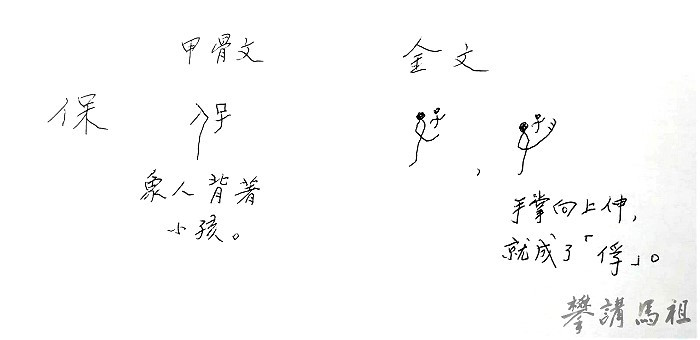 甲骨文
金文
保
象人背著
小孩。
,
手掌向上伸,
就成了「俘」。
攀講馬祖